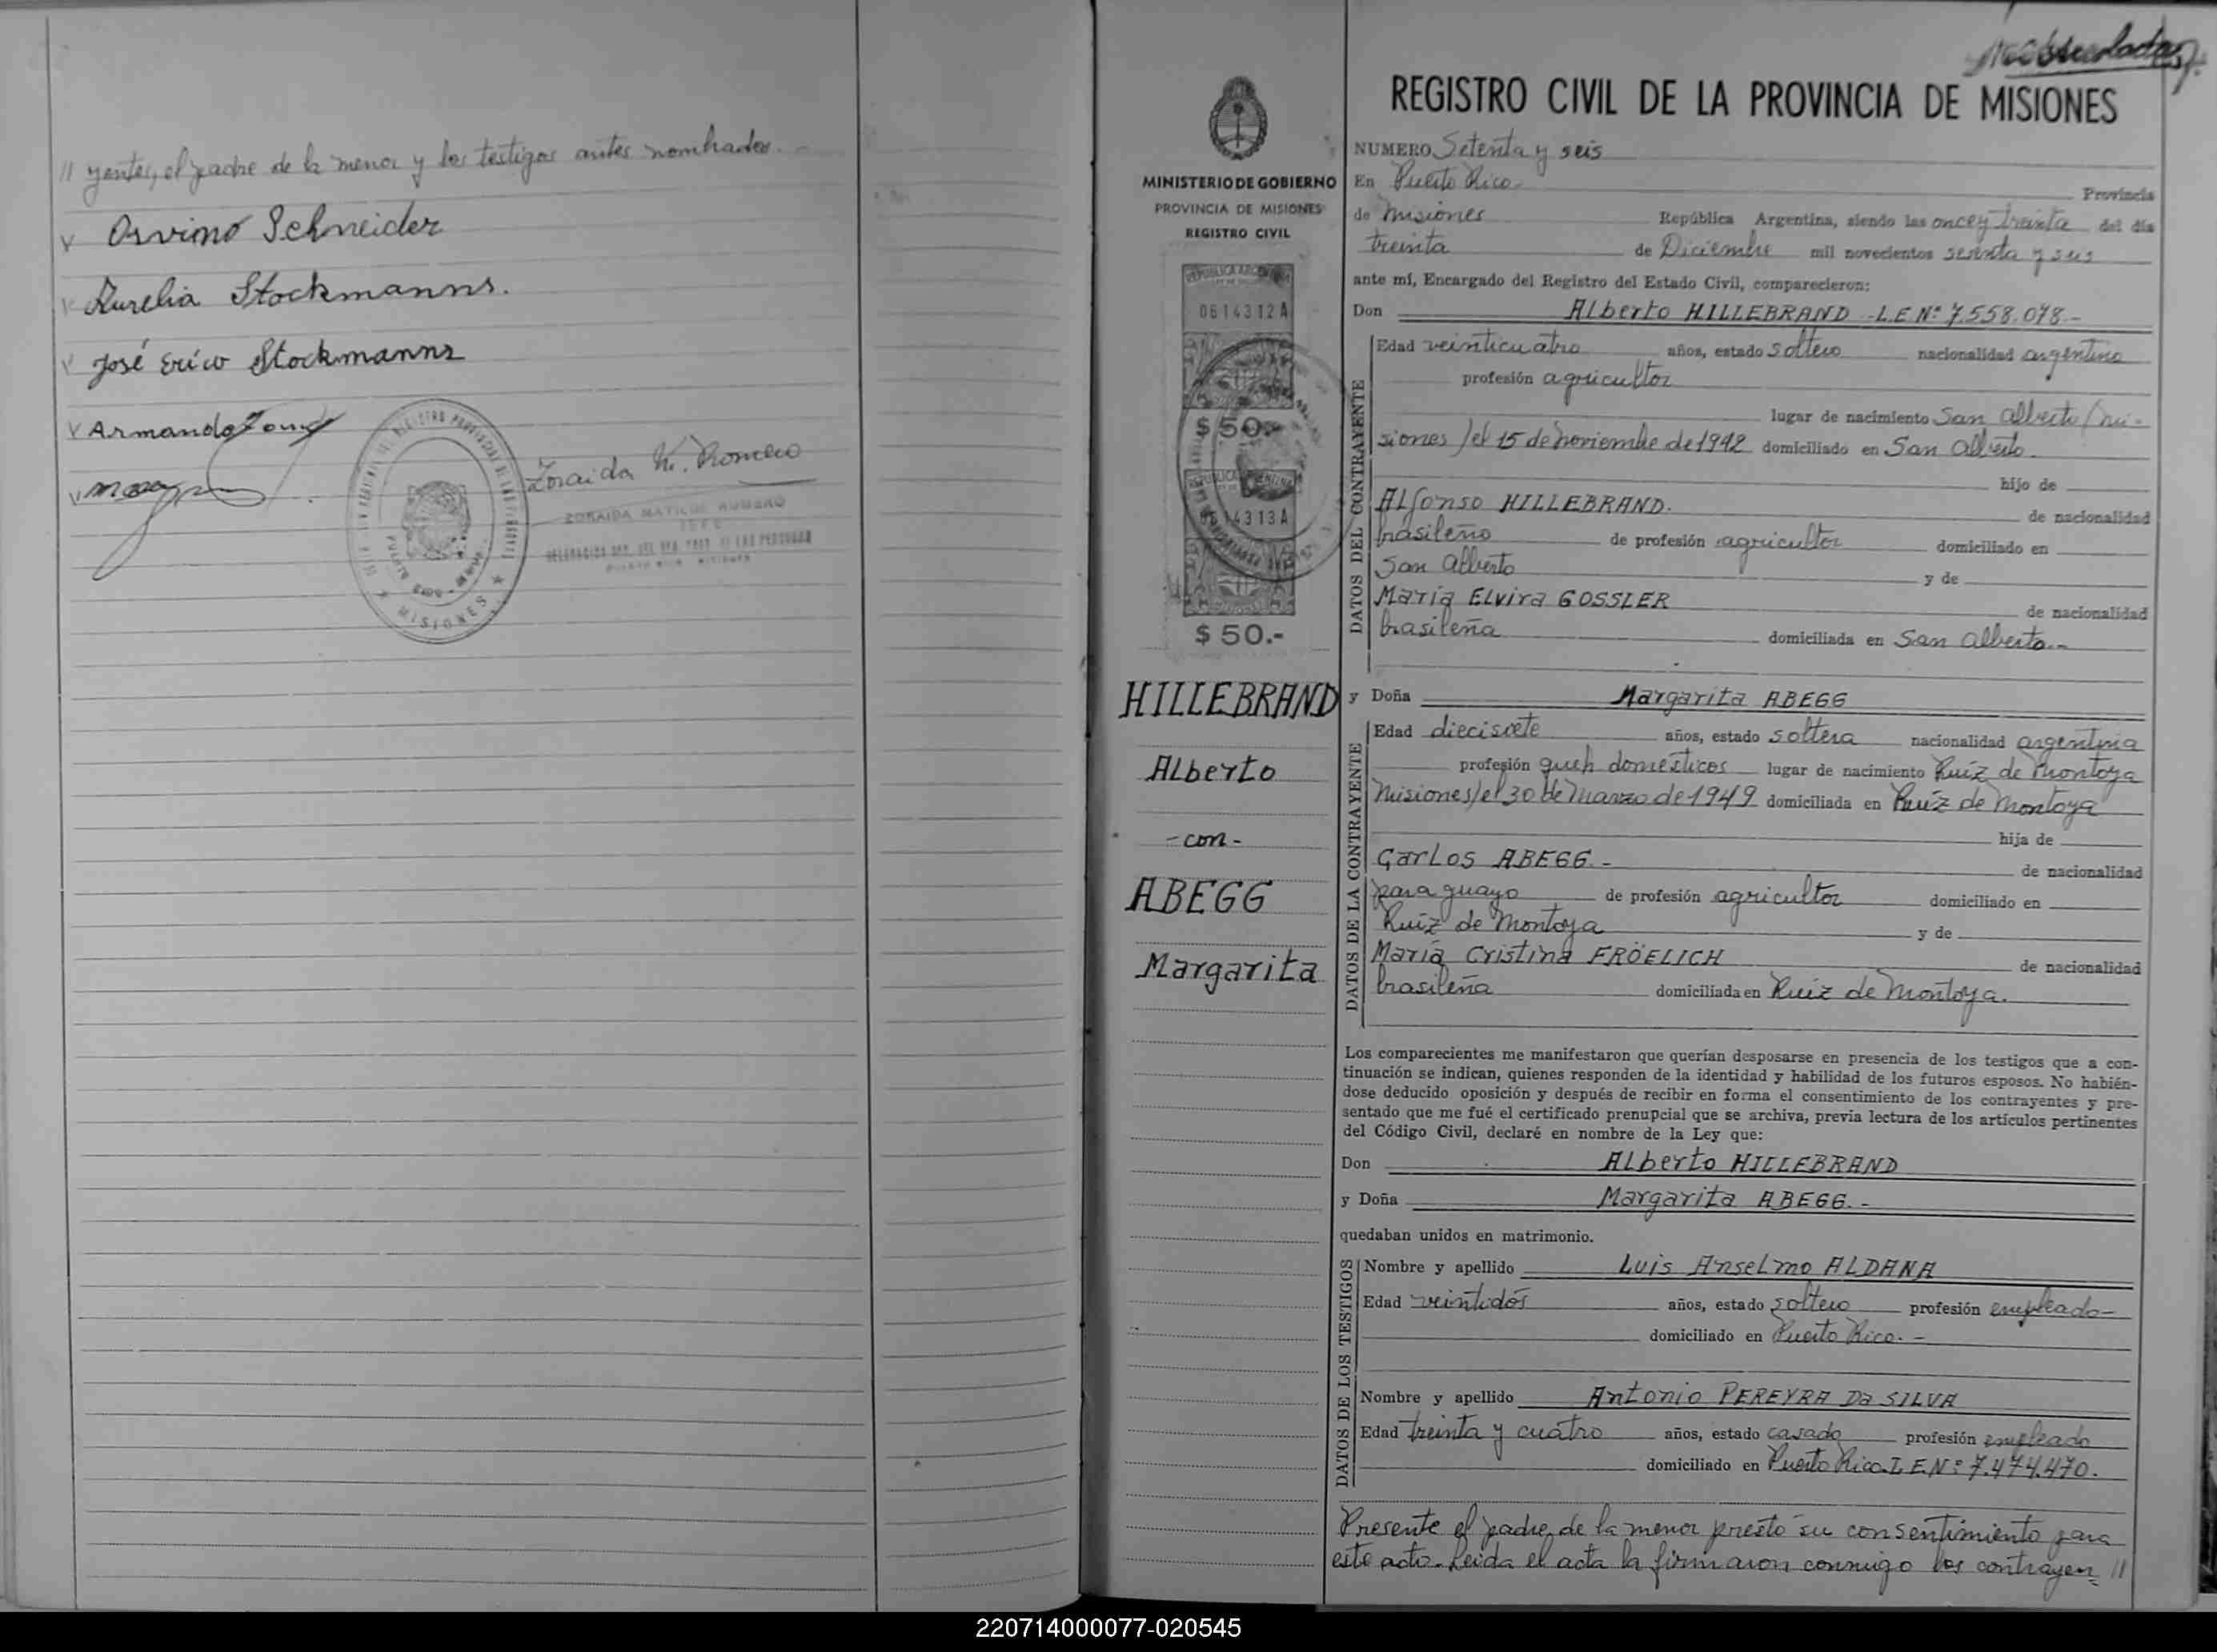 // yentes, el padre de la menor y los testigos antes nombrados.-
v Osvino Schneider
v Aurelia Stockmanns.
v José Erico Stockmanns
v Armando
Zoraida M. Romero
ZORAIDA MATILDE ROMERO
JEFE
PUERTO RICO - MISIONES
MISIONES
REGISTRO CIVIL DE LA PROVINCIA DE MISIONES
MINISTERIO DE GOBIERNO
PROVINCIA DE MISIONES
REGISTRO CIVIL
REPUBLICA ARGENTINA
0614312A
$ 50.-
REPUBLICA ARGENTINA
14313A
$ 50.-
HILLEBRAND
Alberto
- con -
ABEGG
Margarita
NUMERO Setenta y seis
En Puerto Rico Provincia
de Misiones República Argentina, siendo las once y treinta del día
treinta de Diciembre mil novecientos sesenta y seis
ante mí, Encargado del Registro del Estado Civil, comparecieron:
Don Alberto HILLEBRAND - L.E Nº 7.558.078.-
DATOS DEL CONTRAYENTE
Edad veinticuatro años, estado soltero nacionalidad argentino
profesión agricultor
lugar de nacimiento San Alberto (Mi-
siones) el 15 de noviembre de 1942 domiciliado en San Alberto.
hijo de
Alfonso HILLEBRAND. de nacionalidad
brasileño de profesión agricultor domiciliado en
San Alberto y de
María Elvira GOSSLER de nacionalidad
brasileña domiciliada en San Alberto.-
y Doña Margarita ABEGG
DATOS DE LA CONTRAYENTE
Edad diecisiete años, estado soltera nacionalidad argentina
profesión queh. domésticos lugar de nacimiento Ruíz de Montoya
Misiones) el 30 de Marzo de 1949 domiciliada en Ruíz de Montoya
hija de
Carlos ABEGG.- de nacionalidad
paraguayo de profesión agricultor domiciliado en
Ruíz de Montoya y de
María Cristina FRÖELICH de nacionalidad
brasileña domiciliada en Ruíz de Montoya.
Los comparecientes me manifestaron que querían desposarse en presencia de los testigos que a con-
tinuación se indican, quienes responden de la identidad y habilidad de los futuros esposos. No habién-
dose deducido oposición y después de recibir en forma el consentimiento de los contrayentes y pre-
sentado que me fué el certificado prenupcial que se archiva, previa lectura de los artículos pertinentes
del Código Civil, declaré en nombre de la Ley que:
Don Alberto HILLEBRAND
y Doña Margarita ABEGG.-
quedaban unidos en matrimonio.
DATOS DE LOS TESTIGOS
Nombre y apellido Luis Anselmo ALDANA
Edad veintidós años, estado soltero profesión empleado-
domiciliado en Puerto Rico.-
Nombre y apellido Antonio PEREYRA Da SILVA
Edad treinta y cuatro años, estado casado profesión empleado
domiciliado en Puerto Rico. L.E.Nº 7.474.470.
Presente el padre de la menor prestó su consentimiento para
este acto. Leída el acta la firmaron conmigo los contrayen= //
220714000077-020545